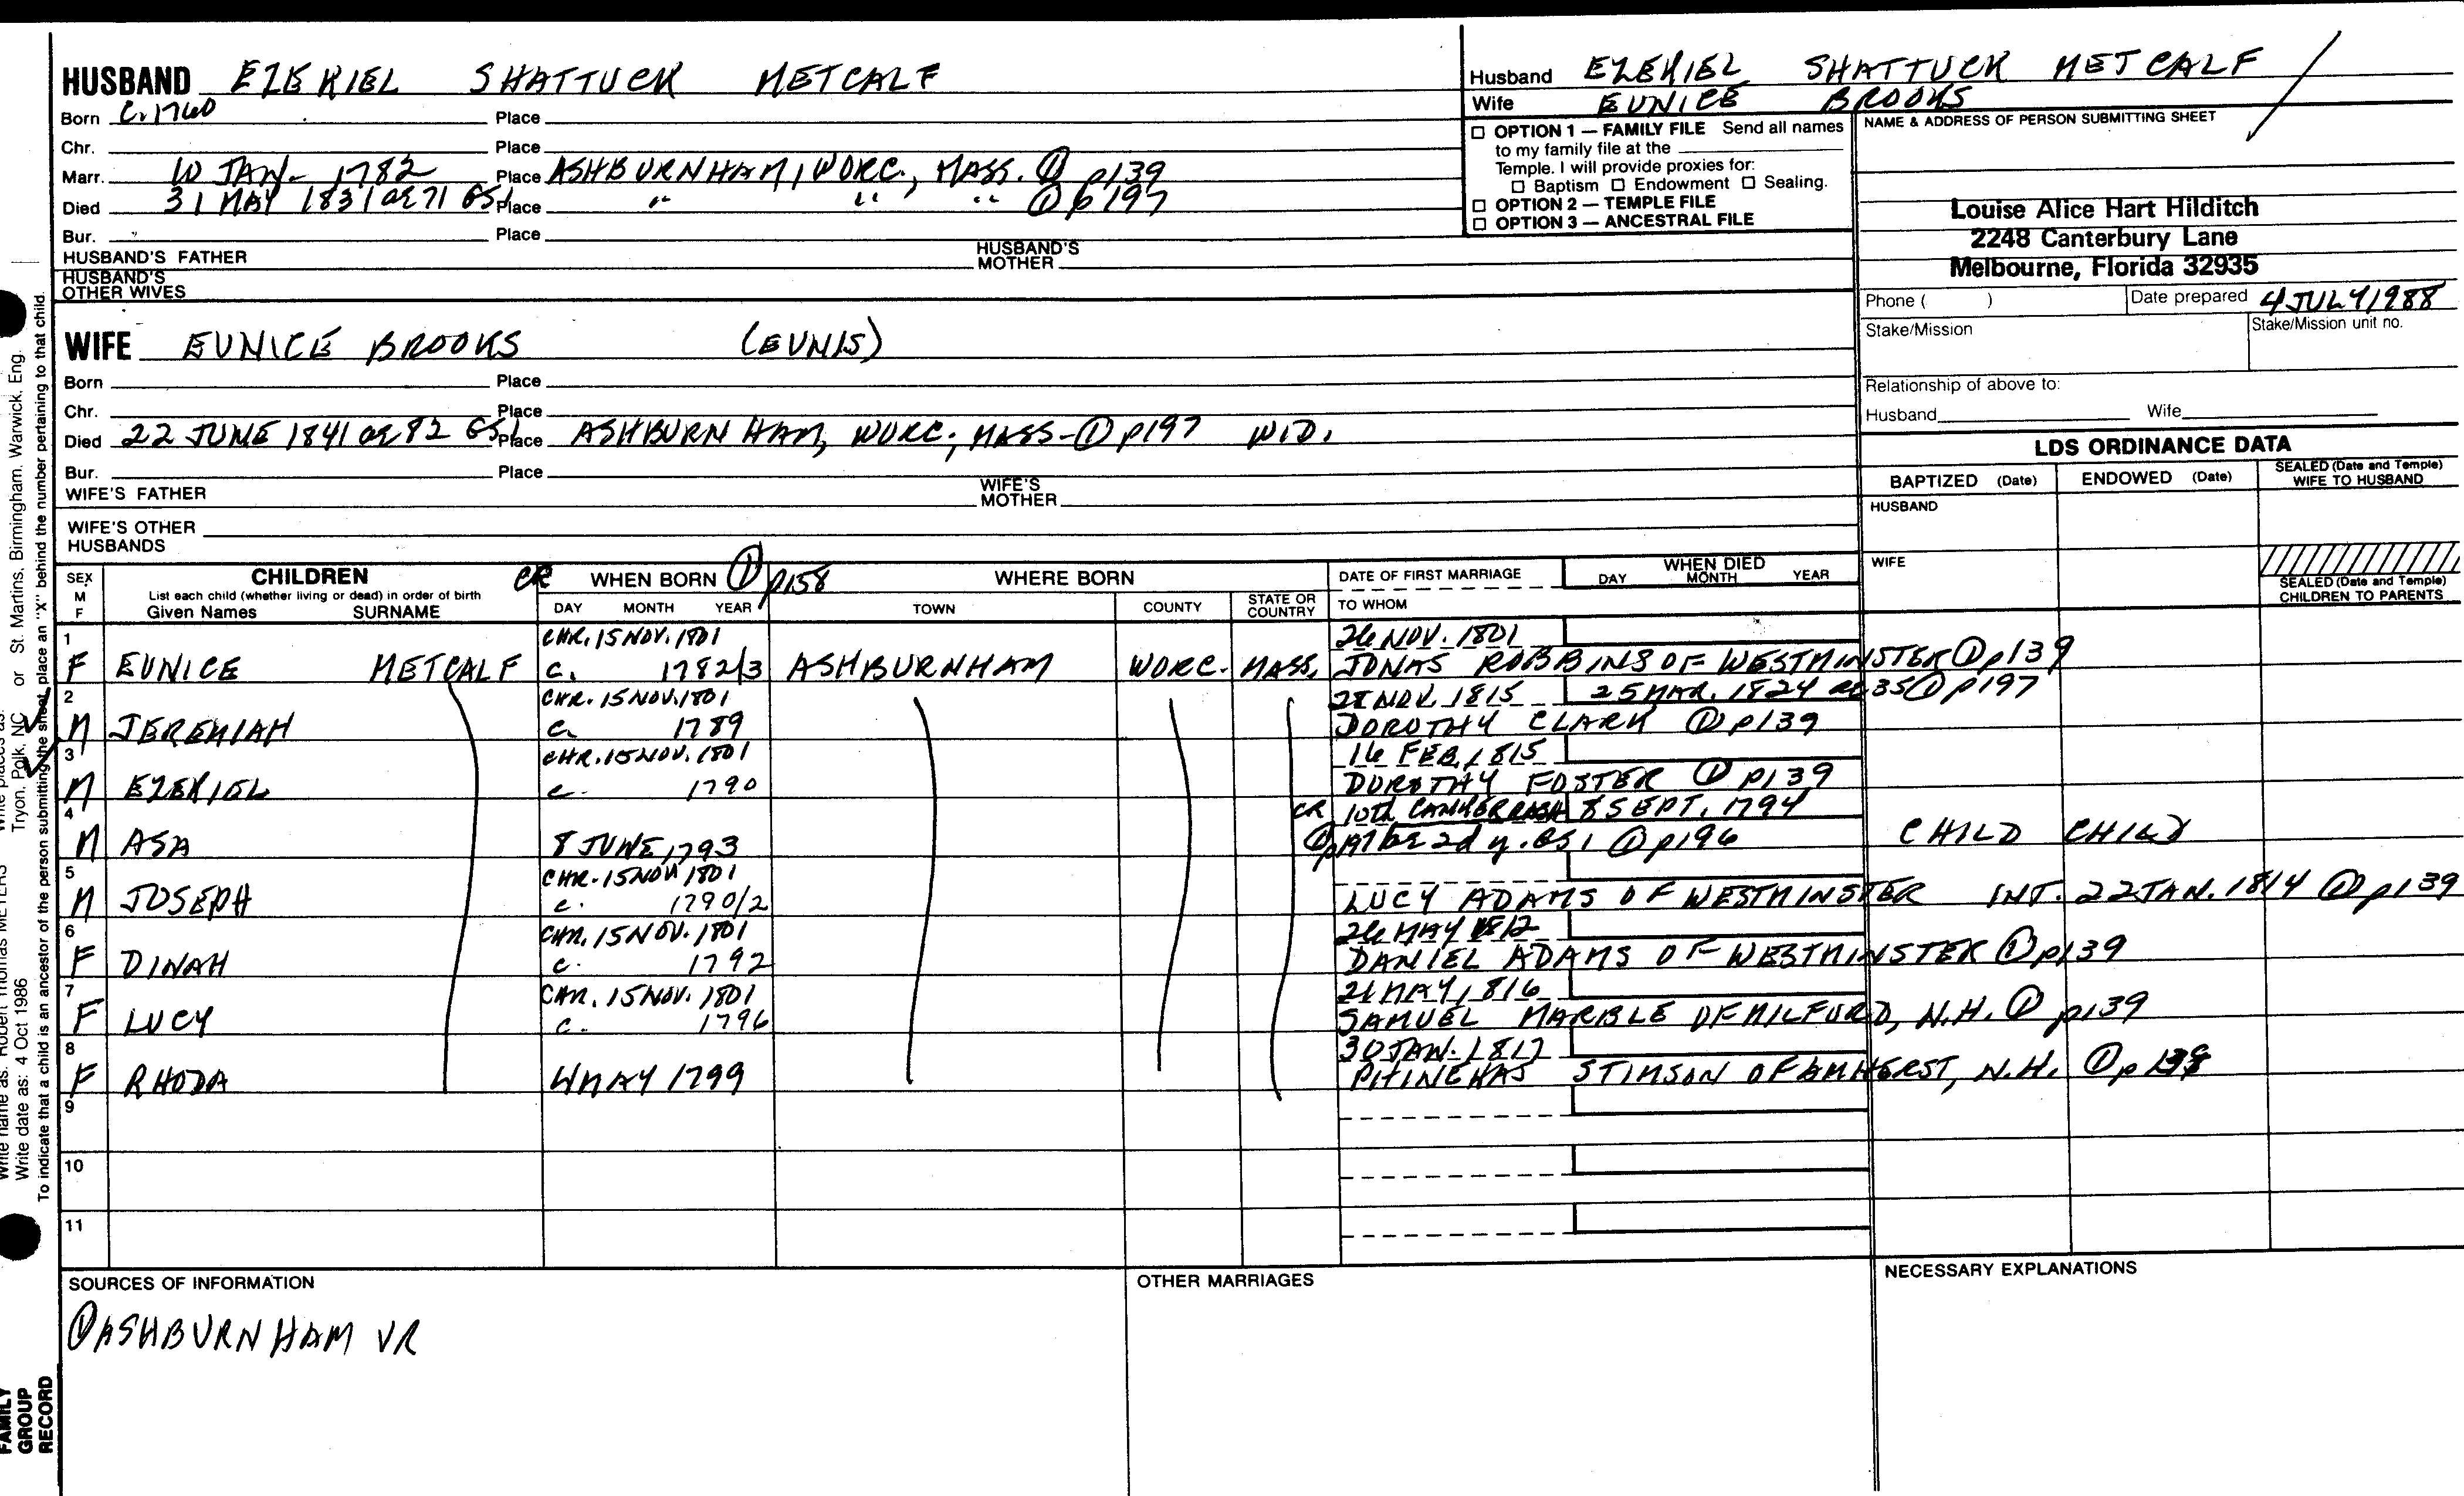 HUSBAND EZEKIEL SHATTUCK METCALF
Born C. 1760 Place
Chr. Place
Marr. 10 JAN. 1782 Place ASHBURNHAM, WORC., MASS. ① p139
Died 31 MAY 1831 ae 71 GS1 Place " " " ① p197
Bur. " Place
HUSBAND'S FATHER HUSBAND'S MOTHER
HUSBAND'S OTHER WIVES
WIFE EUNICE BROOKS (EUNIS)
Born Place
Chr. Place
Died 22 JUNE 1841 ae 82 GS1 Place ASHBURNHAM, WORC., MASS- ① p197 WID.
Bur. Place
WIFE'S FATHER WIFE'S MOTHER
WIFE'S OTHER HUSBANDS
Husband EZEKIEL SHATTUCK METCALF
Wife EUNICE BROOKS
☐ OPTION 1 — FAMILY FILE Send all names
to my family file at the
Temple. I will provide proxies for:
☐ Baptism ☐ Endowment ☐ Sealing.
☐ OPTION 2 — TEMPLE FILE
☐ OPTION 3 — ANCESTRAL FILE
NAME & ADDRESS OF PERSON SUBMITTING SHEET
Louise Alice Hart Hilditch
2248 Canterbury Lane
Melbourne, Florida 32935
Phone ( ) Date prepared 4 JULY 1988
Stake/Mission Stake/Mission unit no.
Relationship of above to:
Husband Wife
LDS ORDINANCE DATA
BAPTIZED (Date) ENDOWED (Date) SEALED (Date and Temple) WIFE TO HUSBAND
HUSBAND
WIFE
SEALED (Date and Temple) CHILDREN TO PARENTS
SEX M F CHILDREN List each child (whether living or dead) in order of birth Given Names SURNAME
CR WHEN BORN ① p158 DAY MONTH YEAR
WHERE BORN TOWN COUNTY STATE OR COUNTRY
DATE OF FIRST MARRIAGE TO WHOM
WHEN DIED DAY MONTH YEAR
1 CHR. 15 NOV. 1801 26 NOV. 1801
F EUNICE METCALF C. 1782/3 ASHBURNHAM WORC. MASS. JONAS ROBBINS OF WESTMINSTER ① p139
2 CHR. 15 NOV. 1801 28 NOV. 1815 25 MAR. 1824 ae 35 ① p197
M JEREMIAH C. 1789 DOROTHY CLARK ① p139
3 CHR. 15 NOV. 1801 16 FEB. 1815
M EZEKIEL c. 1790 DOROTHY FOSTER ① p139
4 CR 10th CANKER RASH 8 SEPT. 1794
M ASA 8 JUNE 1793 ① p197 ae 2d y. GS1 ① p196 CHILD CHILD
5 CHR. 15 NOV 1801
M JOSEPH c. 1790/2 LUCY ADAMS OF WESTMINSTER INT. 22 JAN. 1814 ① p139
6 CHR. 15 NOV. 1801 26 MAY 1812
F DINAH c. 1792 DANIEL ADAMS OF WESTMINSTER ① p139
7 CHR. 15 NOV. 1801 21 MAY 1816
F LUCY c. 1796 SAMUEL MARBLE OF MILFORD, N.H. ① p139
8 30 JAN. 1817
F RHODA 4 MAY 1799 PHINEHAS STIMSON OF AMHERST, N.H. ① p 139
9
10
11
SOURCES OF INFORMATION OTHER MARRIAGES NECESSARY EXPLANATIONS
① ASHBURNHAM VR
or St. Martins, Birmingham, Warwick, Eng.
Tryon, Polk, NC
Write name as: Robert Thomas METERS
Write date as: 4 Oct 1986
To indicate that a child is an ancestor of the person submitting the sheet, place an "X" behind the number pertaining to that child.
FAMILY
GROUP
RECORD